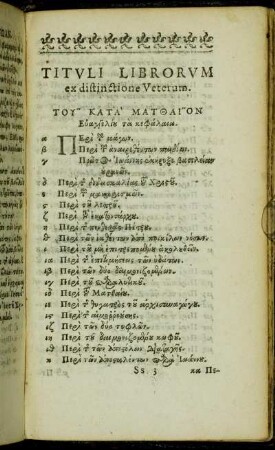 TITVLI LIBRORVM
ex distinctione Veterum.
ΤΟΥ ΚΑΤΑ ΜΑΤΘΑΙΟΝ
Εὐαγγελίου τὰ κεφάλαια.
α Περὶ τῶν μάγων.
β Περὶ τῶν ἀναιρεθέντων παιδίων.
γ Πρῶτος Ἰωάννης ἐκήρυξε βασιλείαν
οὐρανῶν.
δ Περὶ τῆς διδασκαλίας τοῦ Χριστοῦ.
ε Περὶ τῶν μακαρισμῶν.
ϛ Περὶ τοῦ λεπροῦ.
ζ Περὶ τοῦ ἑκατοντάρχου.
η Περὶ τῆς πενθερᾶς Πέτρου.
θ Περὶ τῶν ἰαθέντων ἀπὸ ποικίλων νόσων.
ι Περὶ τοῦ μὴ ἐπιτρεπομένου ἀκολουθεῖν.
ια Περὶ τῆς ἐπιτιμήσεως τῶν ὑδάτων.
ιβ Περὶ τῶν δύο δαιμονιζομένων.
ιγ Περὶ τοῦ παραλυτικοῦ.
ιδ Περὶ τοῦ Ματθαίου.
ιε Περὶ τῆς θυγατρὸς τοῦ ἀρχισυναγώγου.
ιϛ Περὶ τῆς αἱμορροούσης.
ιζ Περὶ τῶν δύο τυφλῶν.
ιη Περὶ τοῦ δαιμονιζομένου κωφοῦ.
ιθ Περὶ τῶν ἀποστόλων διαταγῆς.
κ Περὶ τῶν ἀποσταλέντων παρὰ Ἰωάννου.
Ss 3 κα Πε-